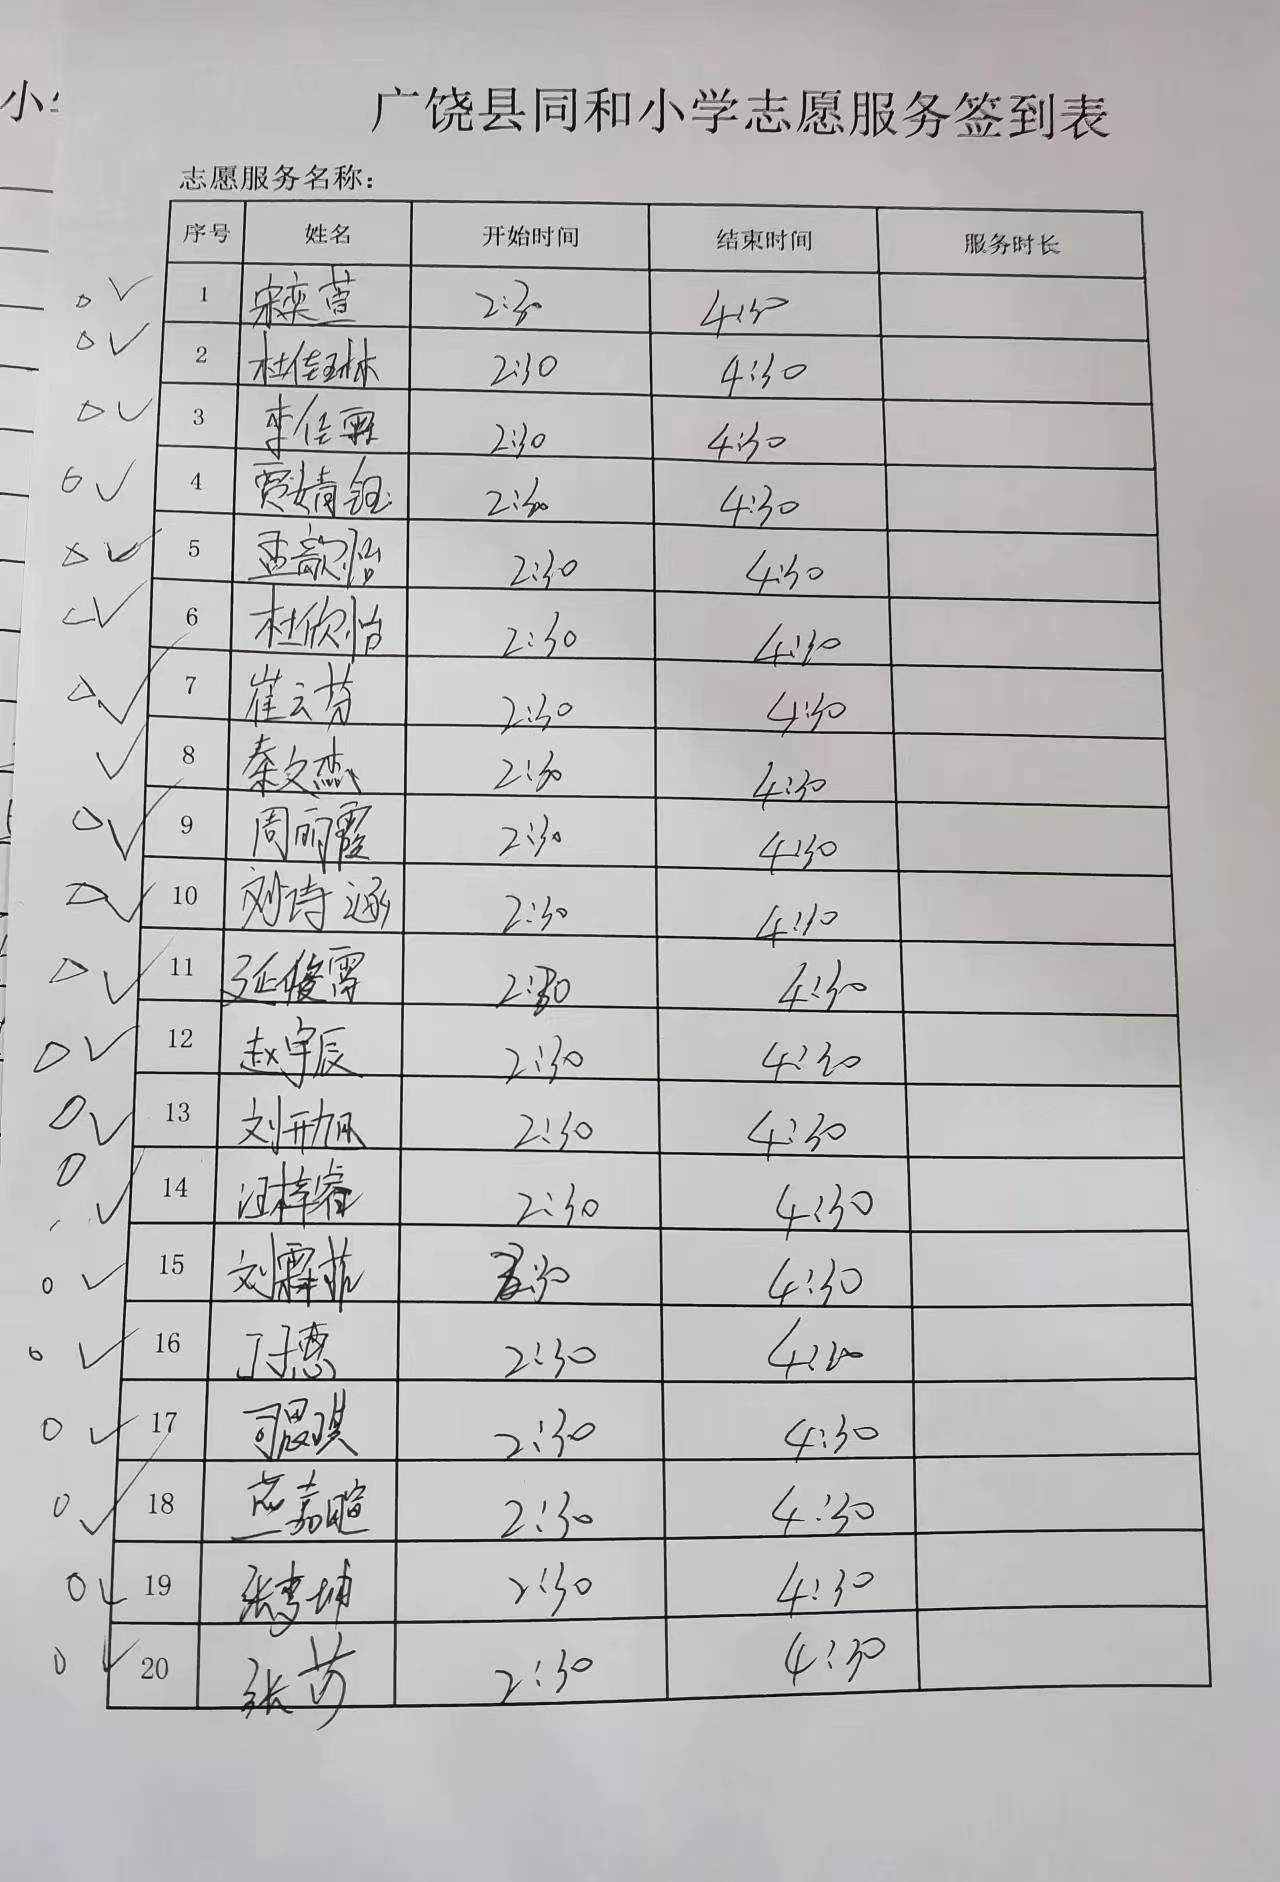 小学
广饶县同和小学志愿服务签到表
志愿服务名称：
序号 姓名 开始时间 结束时间 服务时长
1 宋奕萱 2:30 4:30
2 杜佳琳 2:30 4:30
3 李佳霖 2:30 4:30
4 贾婧钰 2:30 4:30
5 孟歆怡 2:30 4:30
6 杜欣怡 2:30 4:30
7 崔云芬 2:30 4:30
8 秦文杰 2:30 4:30
9 周丽霞 2:30 4:30
10 刘诗涵 2:30 4:30
11 延俊霄 2:30 4:30
12 赵宇辰 2:30 4:30
13 刘开旭 2:30 4:30
14 汪梓睿 2:30 4:30
15 刘霖菲 2:30 4:30
16 2:30 4:30
17 司思琪 2:30 4:30
18 燕嘉暄 2:30 4:30
19 张孝坤 2:30 4:30
20 张芮 2:30 4:30